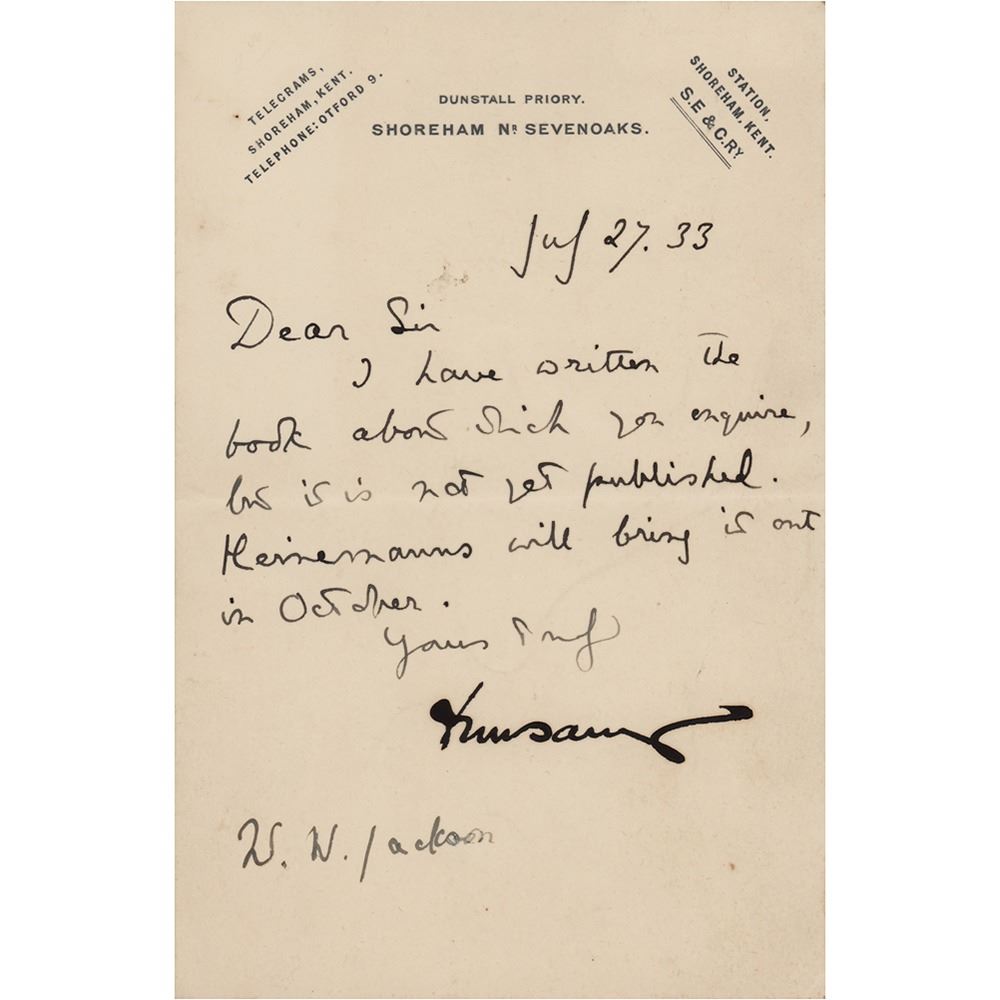 TELEGRAMS,
SHOREHAM, KENT.
TELEPHONE: OTFORD 9.
DUNSTALL PRIORY.
SHOREHAM NR SEVENOAKS.
STATION,
SHOREHAM, KENT.
S.E & C.RY
July 27. 33
Dear Sir
I have written the
book about which you enquire,
but it is not yet published.
Heinemanns will bring it out
in October.
Yours truly
Dunsany
W. W. Jackson